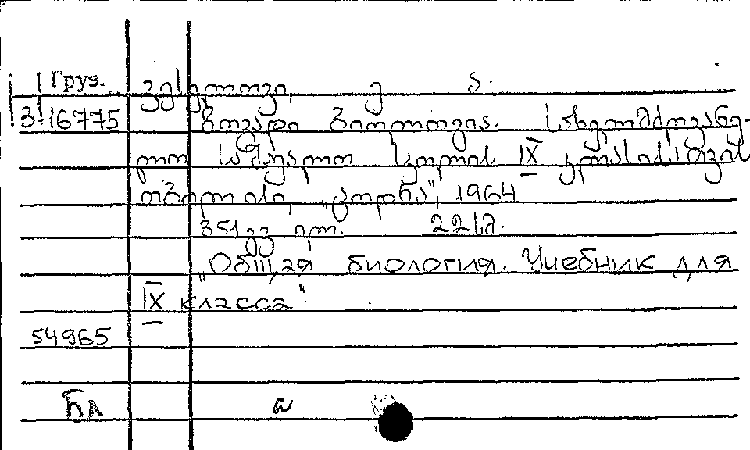 Груз.
3-16775
ზოგადი ბიოლოგია. სახელმძღვანე-
ლო საშუალო სკოლის IX კლასისათვის
თბილისი, „ცოდნა", 1964
351 გვ. ილ. 22 სმ.
„Общая биология. Учебник для
IX класса"
54965